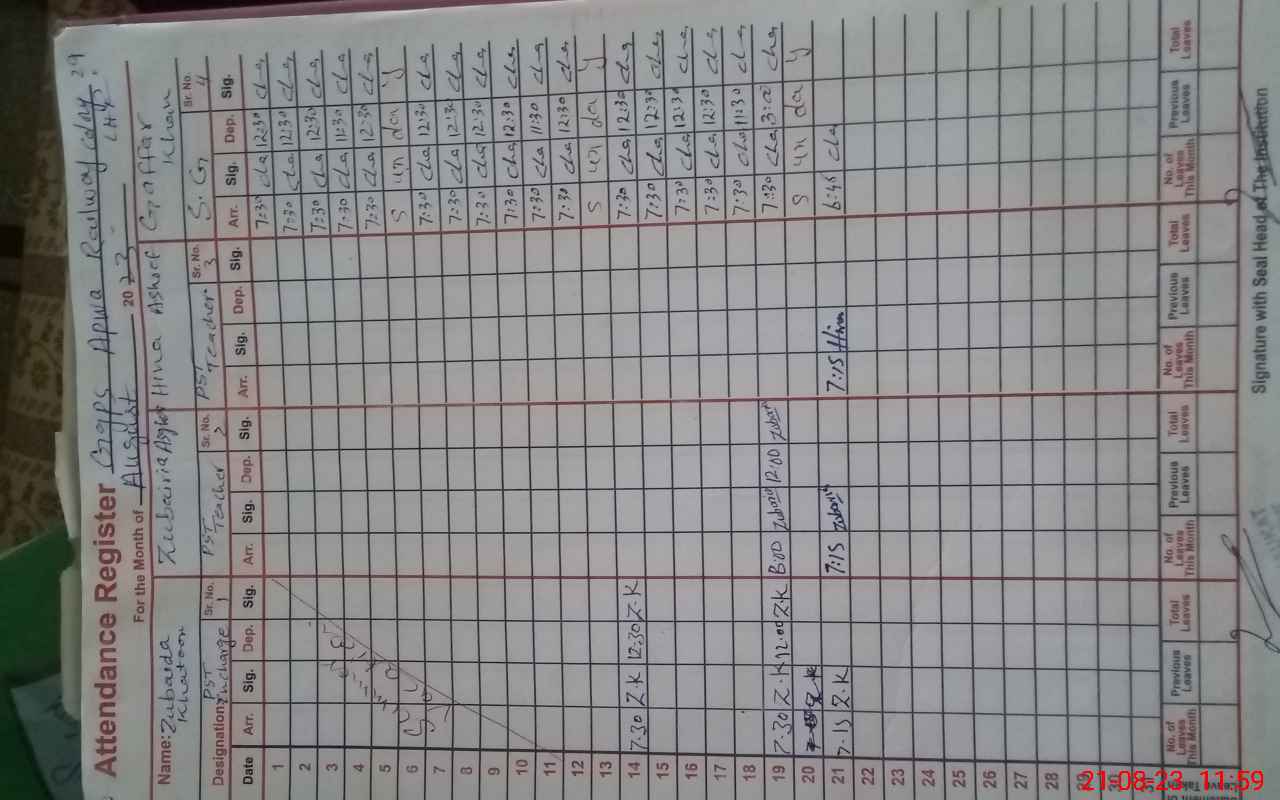 Attendance Register GGPS Apwa Railway colony
For the Month of August 2023
Name: Zubaida Khatoon Zubairia Asghar Hina Ashraf G. Gaffar Khan
Designation: PST Incharge Sr. No. 1 PST Teacher Sr. No. 2 PST Teacher Sr. No. 3 S. G Sr. No. 4
Date Arr. Sig. Dep. Sig. Arr. Sig. Dep. Sig. Arr. Sig. Dep. Sig. Arr. Sig. Dep. Sig.
1 7:30 cha 12:30 cha
2 7:30 cha 12:30 cha
3 7:30 cha 12:30 cha
4 7:30 cha 11:30 cha
5 7:30 cha 12:30 cha
6 S un da y
7 7:30 cha 12:30 cha
8 7:30 cha 12:30 cha
9 7:30 cha 12:30 cha
10 7:30 cha 12:30 cha
11 7:30 cha 11:30 cha
12 7:30 cha 12:30 cha
13 S un da y
14 7:30 Z.K 12:30 Z.K 7:30 cha 12:30 cha
15 7:30 cha 12:30 cha
16 7:30 cha 12:30 cha
17 7:30 cha 12:30 cha
18 7:30 cha 11:30 cha
19 7:30 Z.K 12:00 Z.K 8:00 12:00 7:30 cha 3:00 cha
20 S un da y
21 7:15 Z.K 7:15 7:15 Hina 6:45 cha
22
23
24
25
26
27
28
29
30
No. of Leaves This Month Previous Leaves Total Leaves No. of Leaves This Month Previous Leaves Total Leaves No. of Leaves This Month Previous Leaves Total Leaves No. of Leaves This Month Previous Leaves Total Leaves
Signature with Seal Head of The Institution
21-08-23 11:59